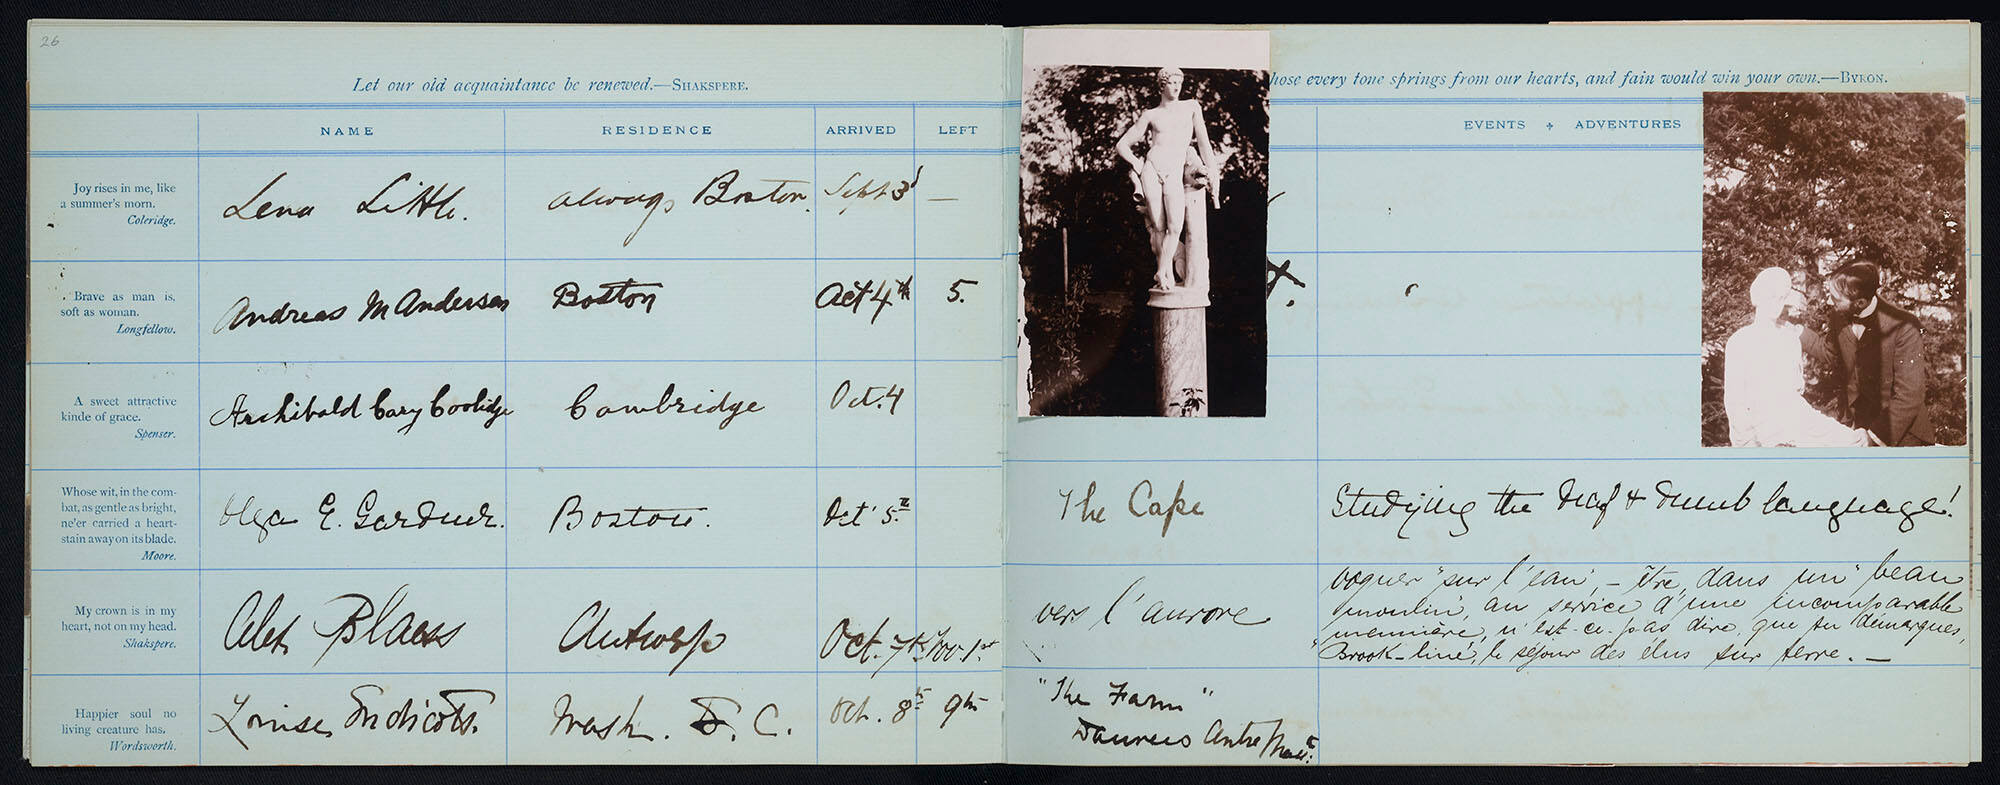 26
Let our old acquaintance be renewed.—SHAKSPERE.
NAME RESIDENCE ARRIVED LEFT
Joy rises in me, like
a summer's morn.
Coleridge.
Lena Little. always Boston. Sept 3d —
Brave as man is,
soft as woman.
Longfellow.
Andreas M Andersen Boston Oct 4th 5.
A sweet attractive
kinde of grace.
Spenser.
Archibald Cary Coolidge Cambridge Oct. 4
Whose wit, in the com-
bat, as gentle as bright,
ne'er carried a heart-
stain away on its blade.
Moore.
Olga E. Gardner. Boston. Oct 5th
My crown is in my
heart, not on my head.
Shakspere.
Antwerp Oct. 7th Nov. 1st
Happier soul no
living creature has.
Wordsworth.
Louise Endicott. Wash. D. C. Oct. 8th 9th
hose every tone springs from our hearts, and fain would win your own.—BYRON.
EVENTS ADVENTURES
The Cape Studying the Deaf & Dumb language!
vers l'aurore
voguer "sur l'eau", - être, dans un "beau
moulin", au service d'une incomparable
meunière, n'est-ce-pas dire, que tu démarques,
"Brook-line", le séjour des élus sur terre. —
"The Farm"
Danvers Centre Mass: